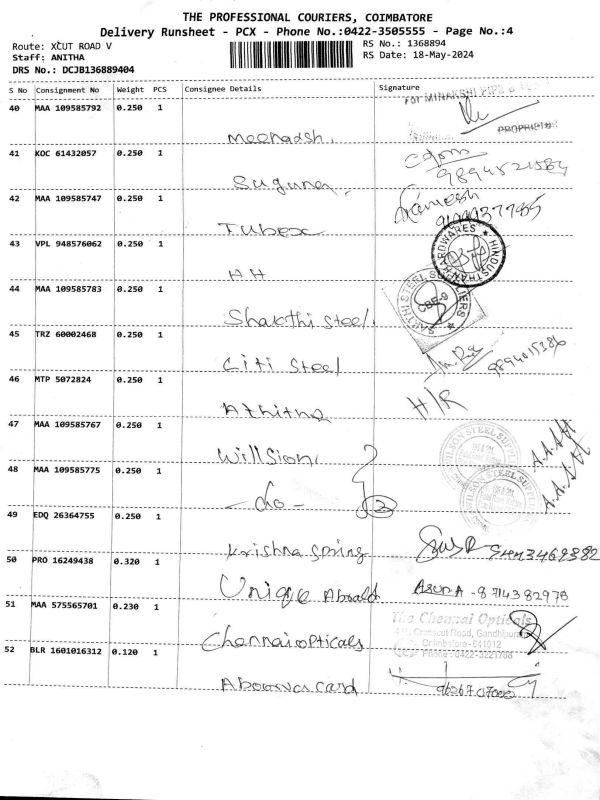 THE PROFESSIONAL COURIERS, COIMBATORE
Delivery Runsheet - PCX - Phone No.:0422-3505555 - Page No.:4
Route: XCUT ROAD V
RS No.: 1368894
Staff: ANITHA
RS Date: 18-May-2024
DRS No.: DCJB136889404
S No Consignment No Weight PCS Consignee Details Signature
40 MAA 109585792 0.250 1
PROPRIETOR
Meenadsh.
41 KOC 61432057 0.250 1
Suguna,
42 MAA 109585747 0.250 1
Ramesh
Tubex
43 VPL 948576062 0.250 1
HINDUSTHAN HARDWARES
HH
44 MAA 109585783 0.250 1
SAKTHI STEEL SUPPLIERS
CBE-9
Shakthi Steel.
45 TRZ 60002468 0.250 1
9894015386
Citi Steel
46 MTP 5072824 0.250 1
H/R
Athitha
47 MAA 109585767 0.250 1
WILSON STEEL SUPPLI
Willsion,
48 MAA 109585775 0.250 1
WILSON STEEL SUPPLI
- do - 2
49 EDQ 26364755 0.250 1
Krishna Spring
50 PRO 16249438 0.320 1
Unique Aboald
Arun A - 8714382978
51 MAA 575565701 0.230 1
The Chennai Opticals
Crosscut Road, Gandhipuram
Coimbatore - 641012
Phone : 0422-3221788
Chennai opticals
52 BLR 1601016312 0.120 1
card